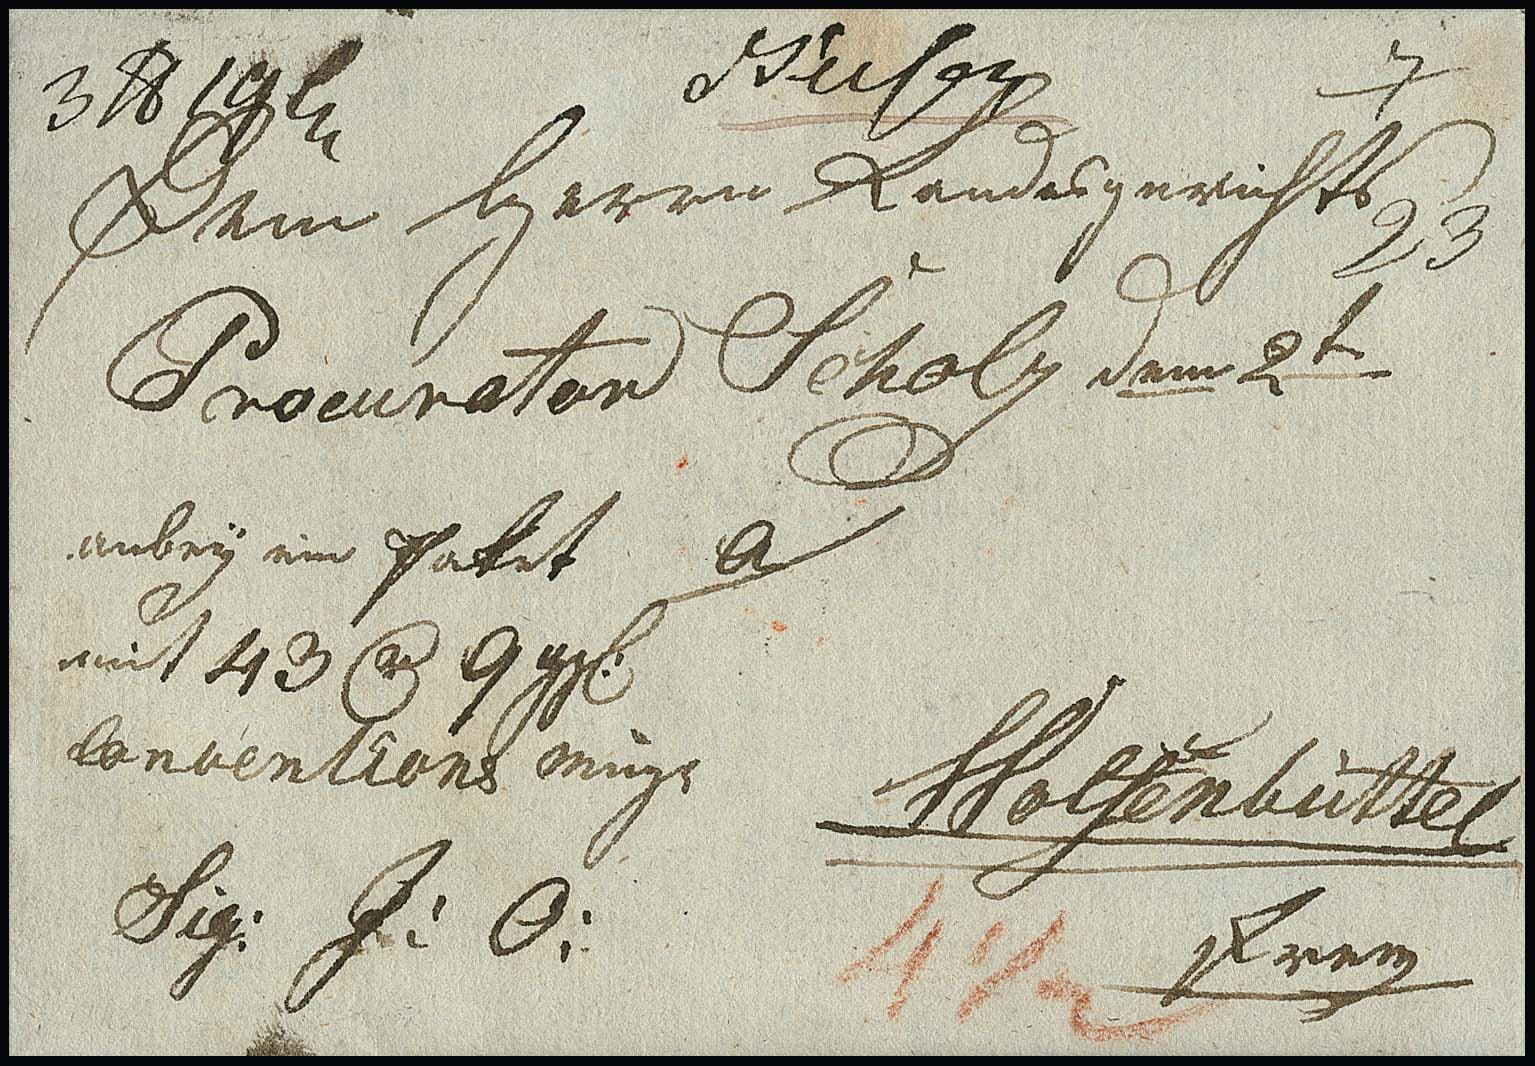 3 ℔ 19 lh
7
Dem Herrn Landesgerichts
23
Procurator Scholz dem 2t
anbey ein Paket a
mit 43 9 ggl:
Conventions münze
Wolfenbüttel
Sig: J: O:
Franco
4 1/2